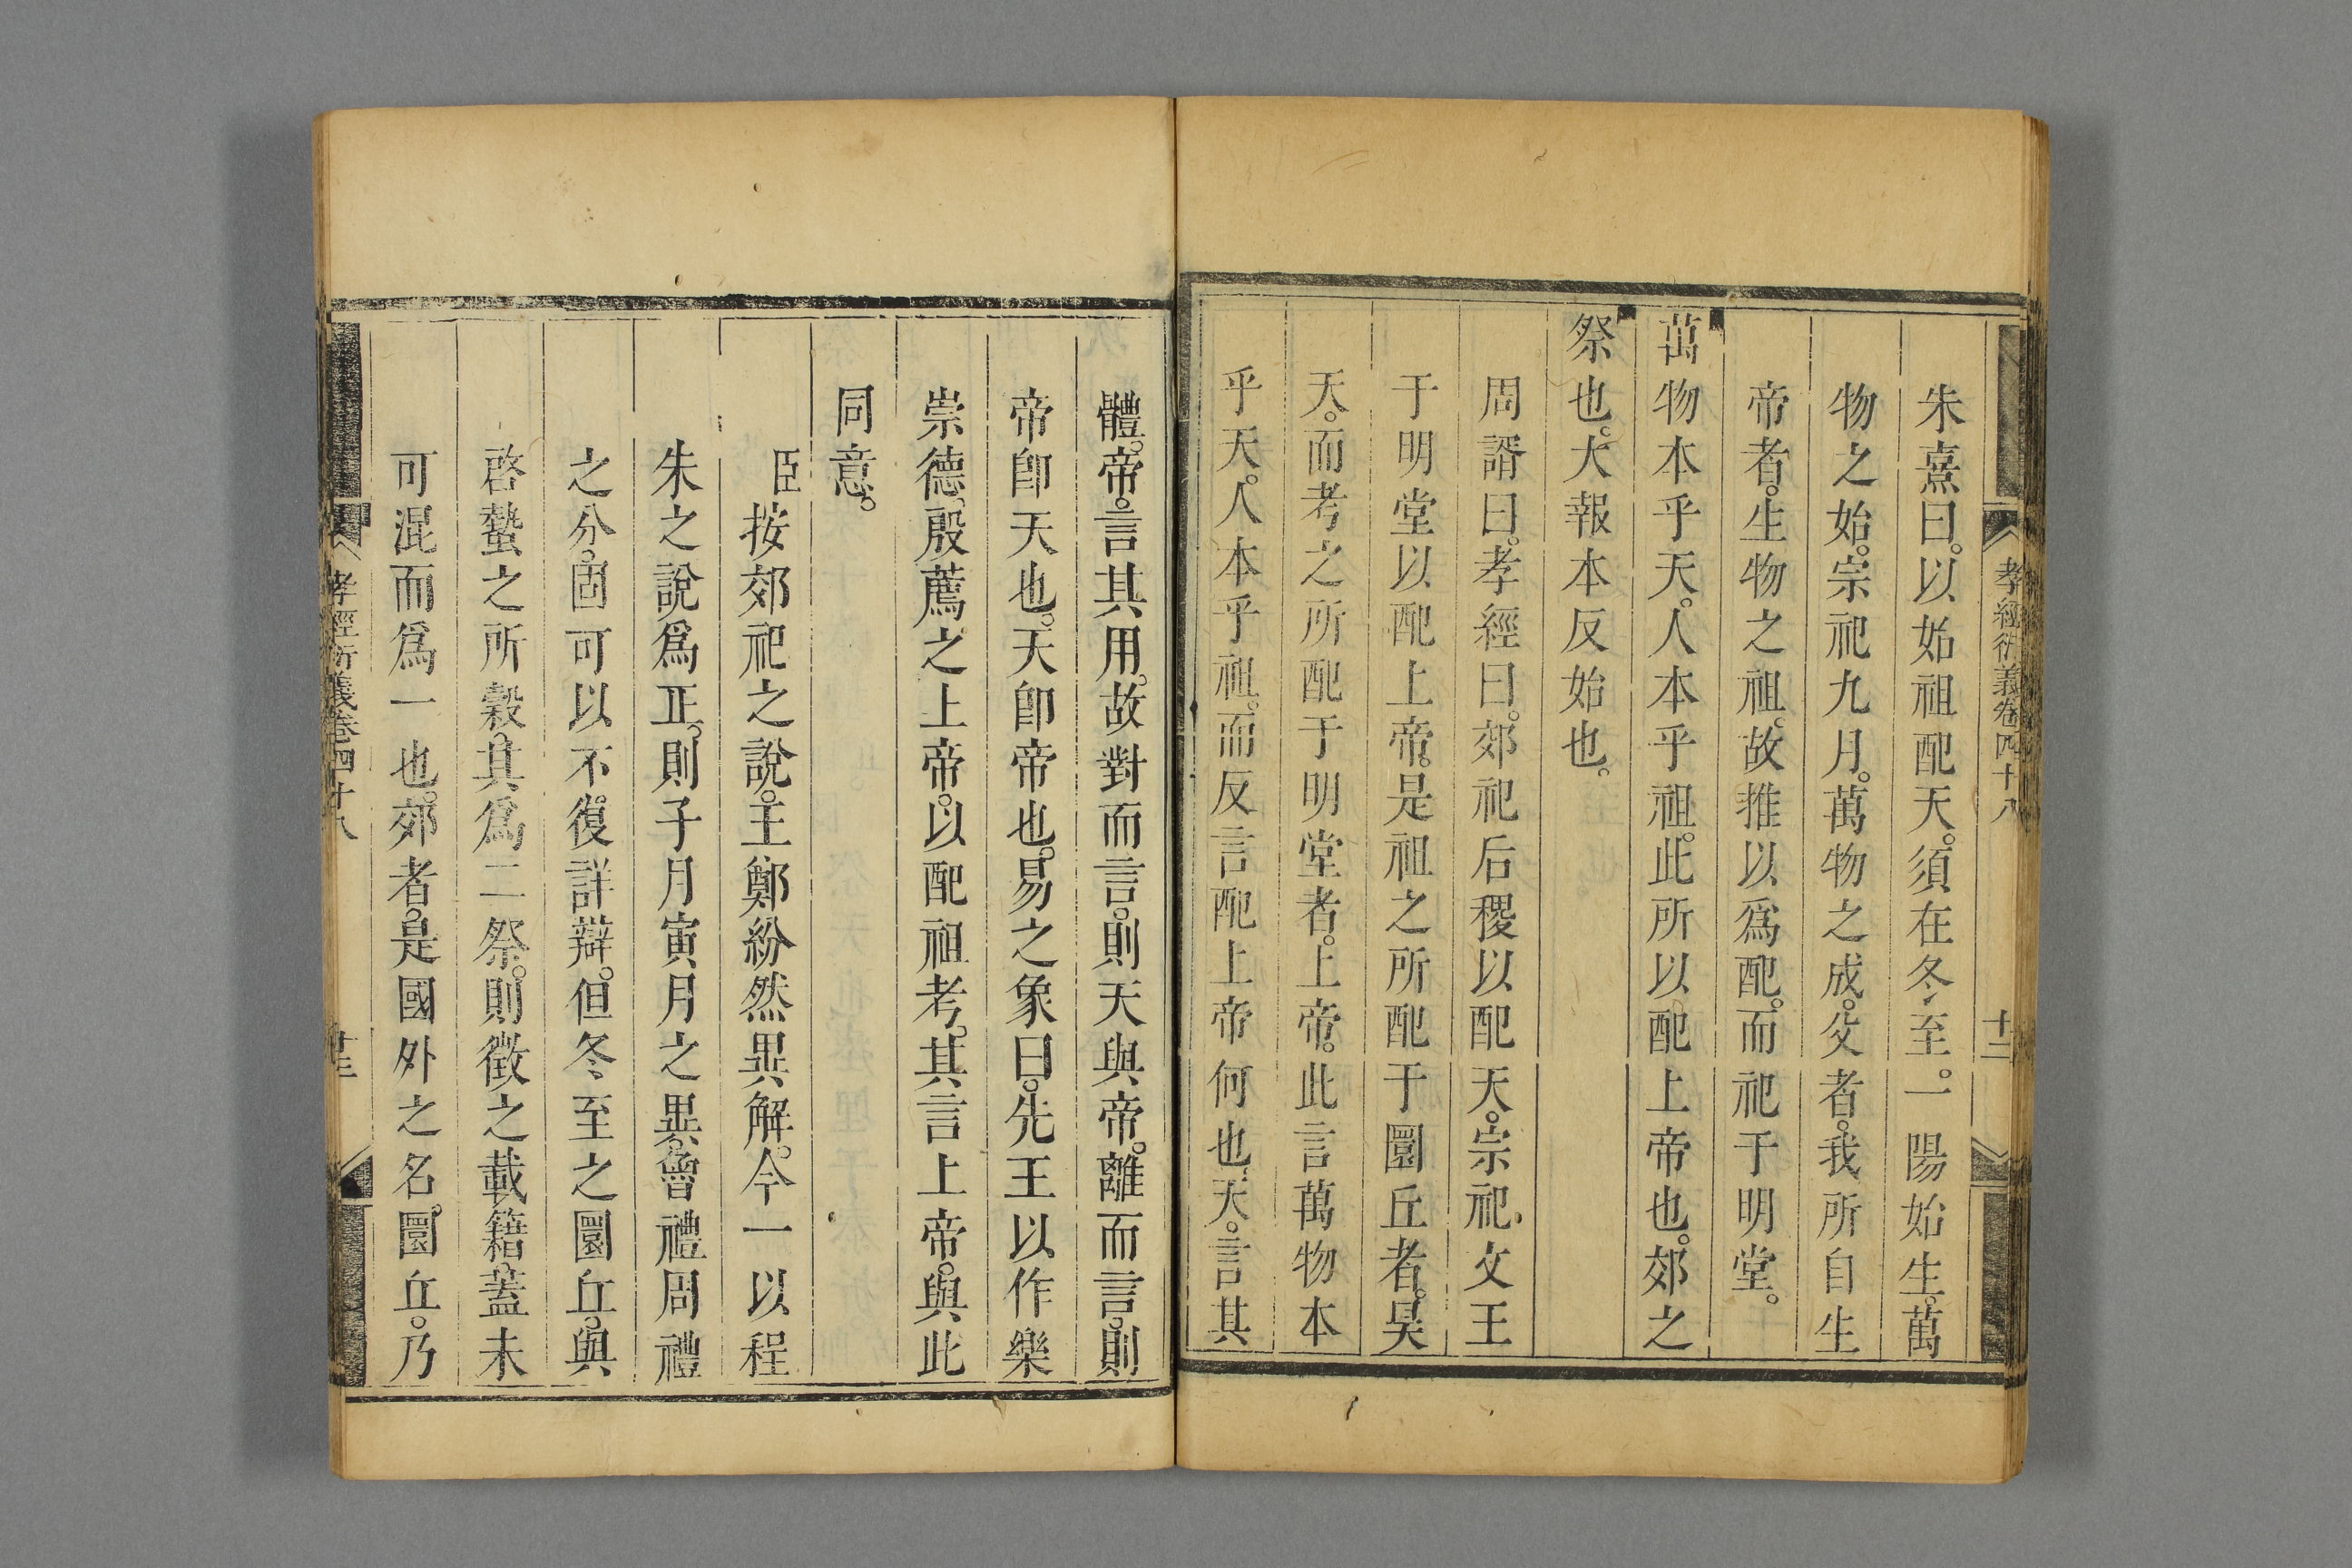 孝經衍義卷四十八
十二
朱熹曰。以始祖配天。須在冬至。一陽始生。萬
物之始。宗祀九月。萬物之成。父者。我所自生
帝者。生物之祖。故推以爲配。而祀于明堂。
萬物本乎天。人本乎祖。此所以配上帝也。郊之
祭也。大報本反始也。
周諝曰。孝經曰。郊祀后稷以配天。宗祀文王
于明堂以配上帝。是祖之所配于圜丘者。昊
天。而考之所配于明堂者。上帝。此言萬物本
乎天。人本乎祖。而反言配上帝何也。天。言其
體。帝。言其用。故對而言。則天與帝。離而言。則
帝卽天也。天卽帝也。易之象曰。先王以作樂
崇德。殷薦之上帝。以配祖考。其言上帝。與此
同意。
臣按郊祀之說。王鄭紛然異解。今一以程
朱之說爲正。則子月寅月之異。魯禮周禮
之分。固可以不復詳辯。但冬至之圜丘。與
啓蟄之所穀。其爲二祭。則徵之載籍。蓋未
可混而爲一也。郊者。是國外之名。圜丘。乃
孝經衍義卷四十八
十三